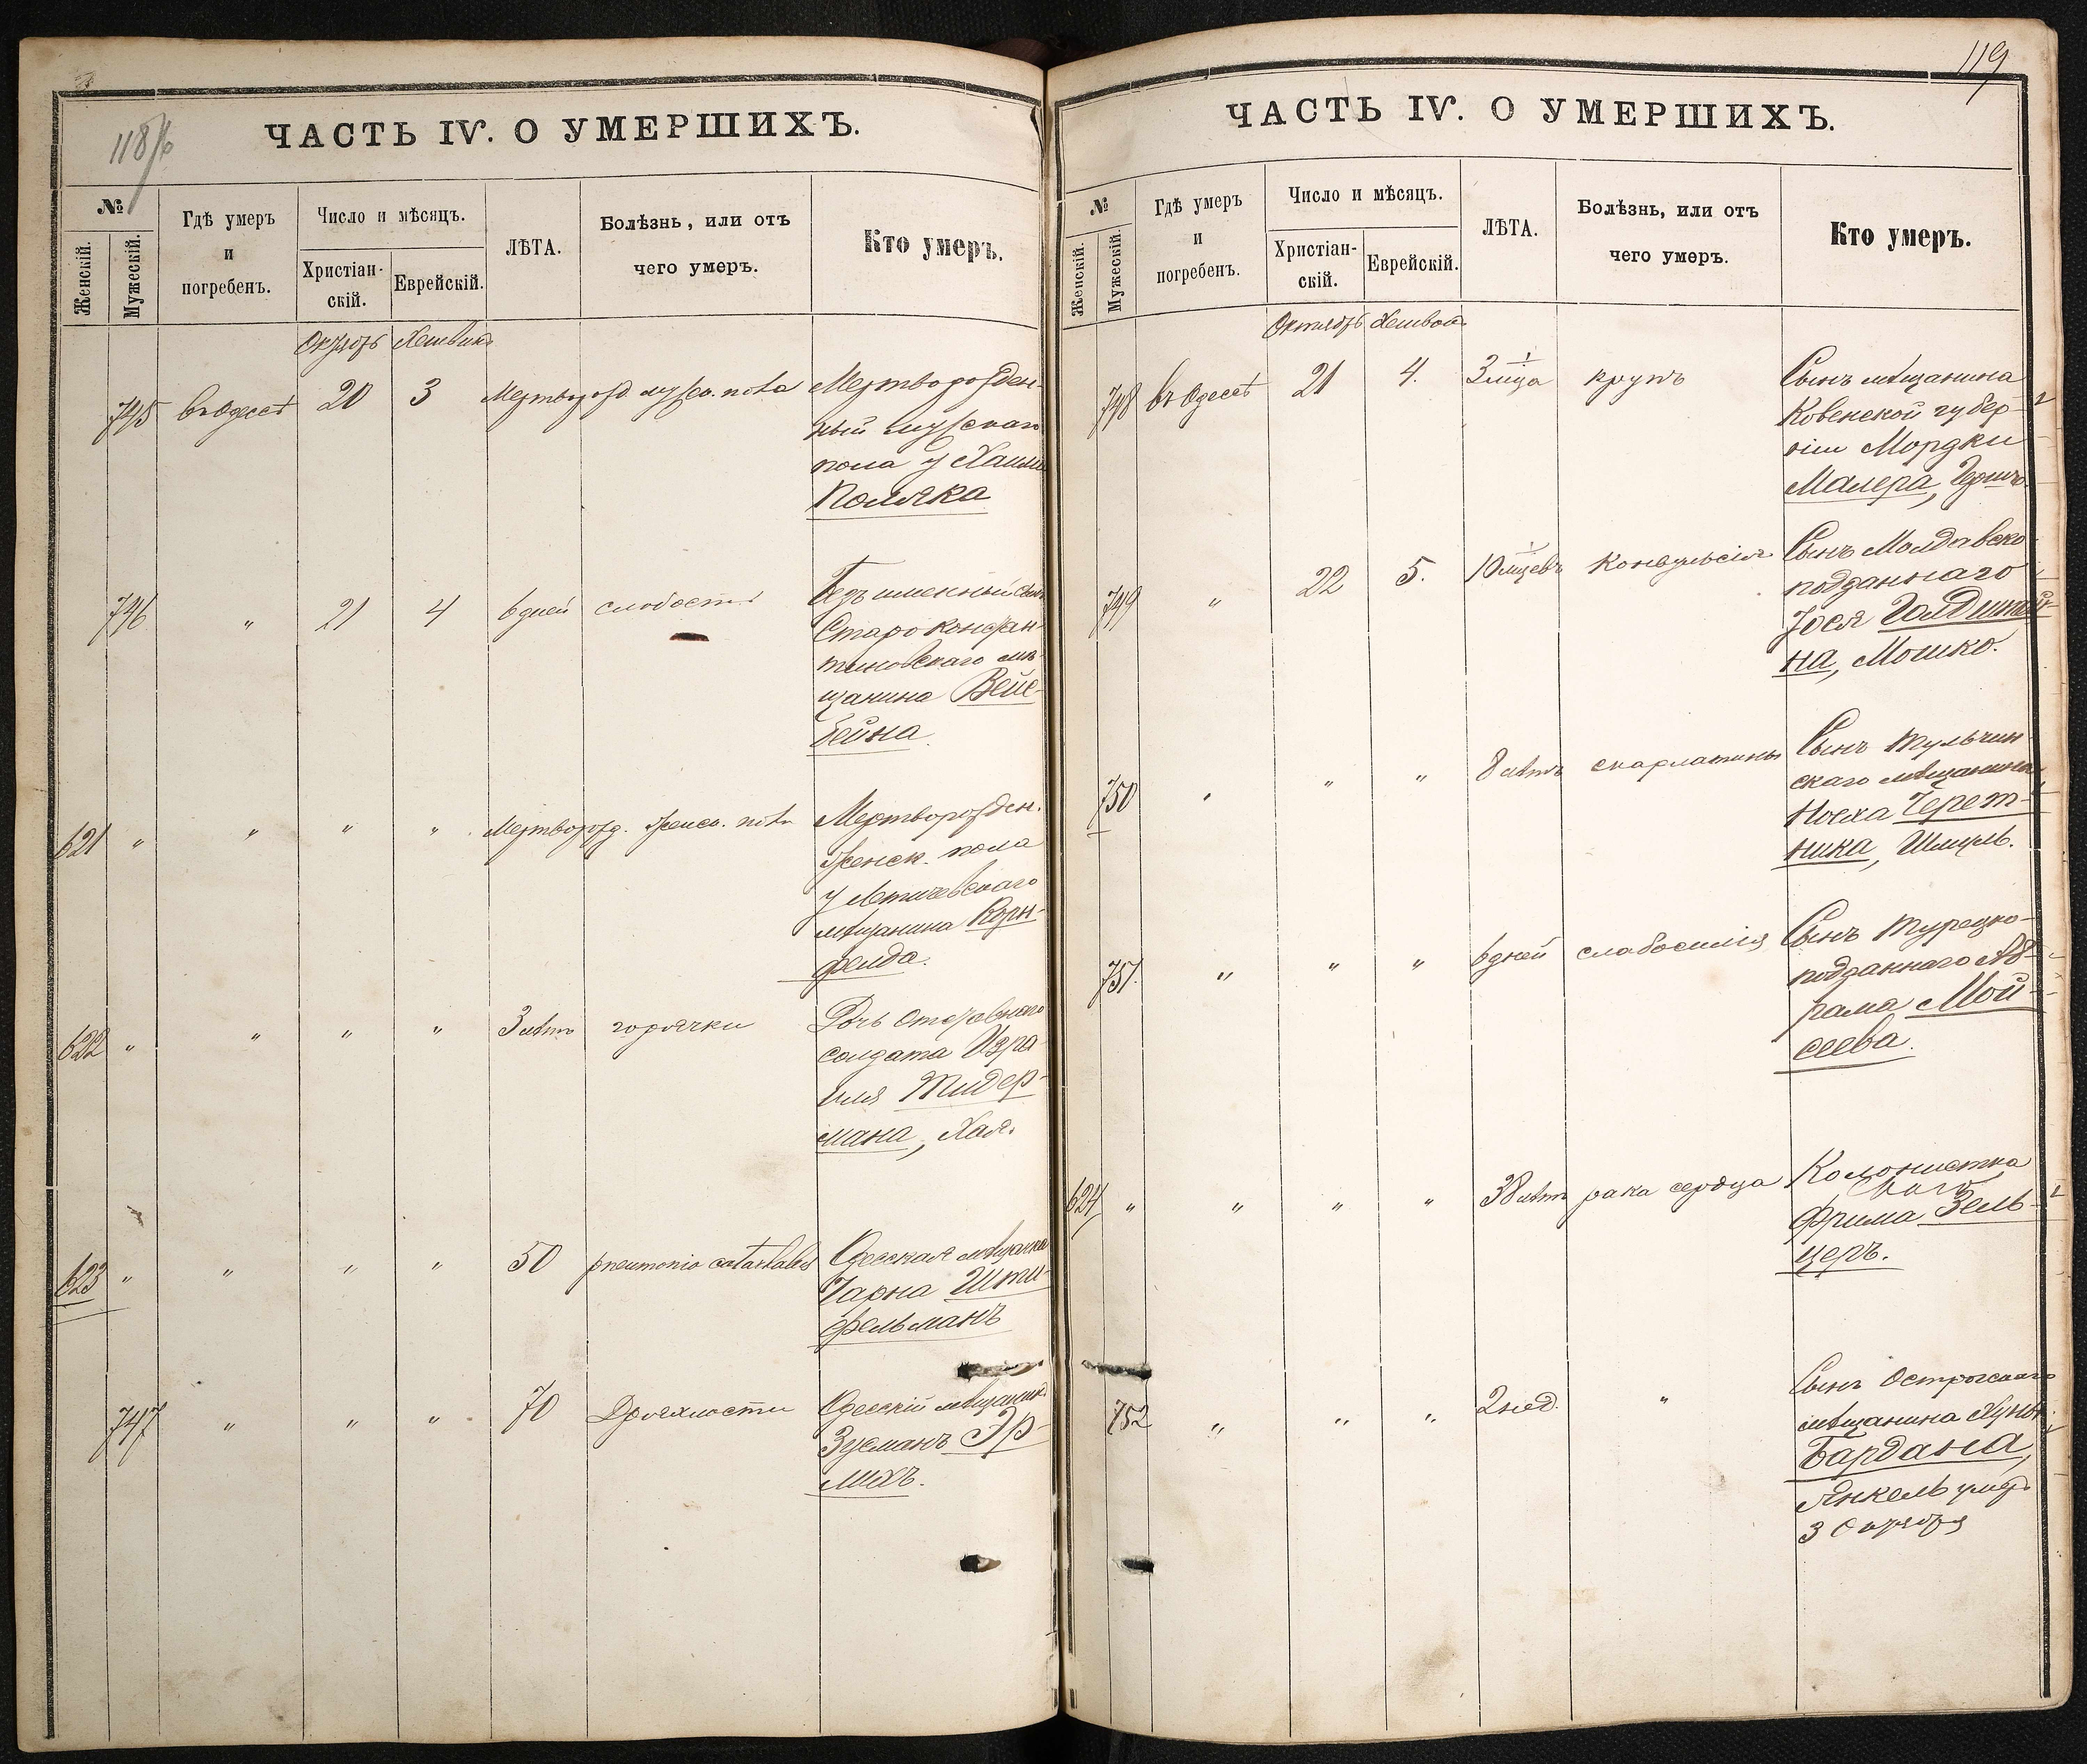 118/б
ЧАСТЬ IV. О УМЕРШИХЪ.
№
Женскій.
Мужескій.
Гдѣ умеръ
и
погребенъ.
Число и мѣсяцъ.
Христіан-
скій.
Еврейскій.
ЛѢТА.
Болѣзнь, или отъ
чего умеръ.
Кто умеръ.
745 въ Одессѣ 20 3 Мертворожден-
ный мужскаго
пола у Хаима
Поляка
746 " 21 4 6 дней слабости
Старо Констан-
тиновскаго мѣ-
щанина Вейс-
бейна
621 " " " " Мертворожд. женск. Мертворожден.
женск. пола
у Летичевскаго
мѣщанина Корн-
фельда.
622 " " " " 3 лѣтъ горячки Дочь Отставнаго
солдата Изра-
иля Тидер-
мана, Хая.
623 " " " " 50 pneumonia Одесская мѣщанка
Чарна Шти-
фельманъ
747 " " " 70 Дряхлости Одесскій мѣщанинъ
Зусманъ Эр-
лихъ.
119
ЧАСТЬ IV. О УМЕРШИХЪ.
№
Женскій.
Мужескій.
Гдѣ умеръ
и
погребенъ.
Число и мѣсяцъ.
Христіан-
скій.
Еврейскій.
ЛѢТА.
Болѣзнь, или отъ
чего умеръ.
Кто умеръ.
Октябрь
748 въ Одессѣ 21 4. 3 крупъ Сынъ мѣщанина
Ковенской губер-
ніи Мордки
Малера,
749 " 22 5. 10 Сынъ Молдавско-
подданнаго
Іося
на, Мошко.
750 " " " 8 лѣтъ скарлатины Сынъ Тульчин-
скаго мѣщанина
Іосха Черет-
ника, Шмуль.
751. " " " 6 дней слабосилія Сынъ Турецко-
подданнаго Аб-
рама Мой-
сеева.
624 " " " " 38 лѣтъ рака сердца Колонистка
Фрима Зель-
церъ.
752 " " " 2 нед. " Сынъ Острогскаго
мѣщанина
Бардана,
Янкель умеръ
3 Октября